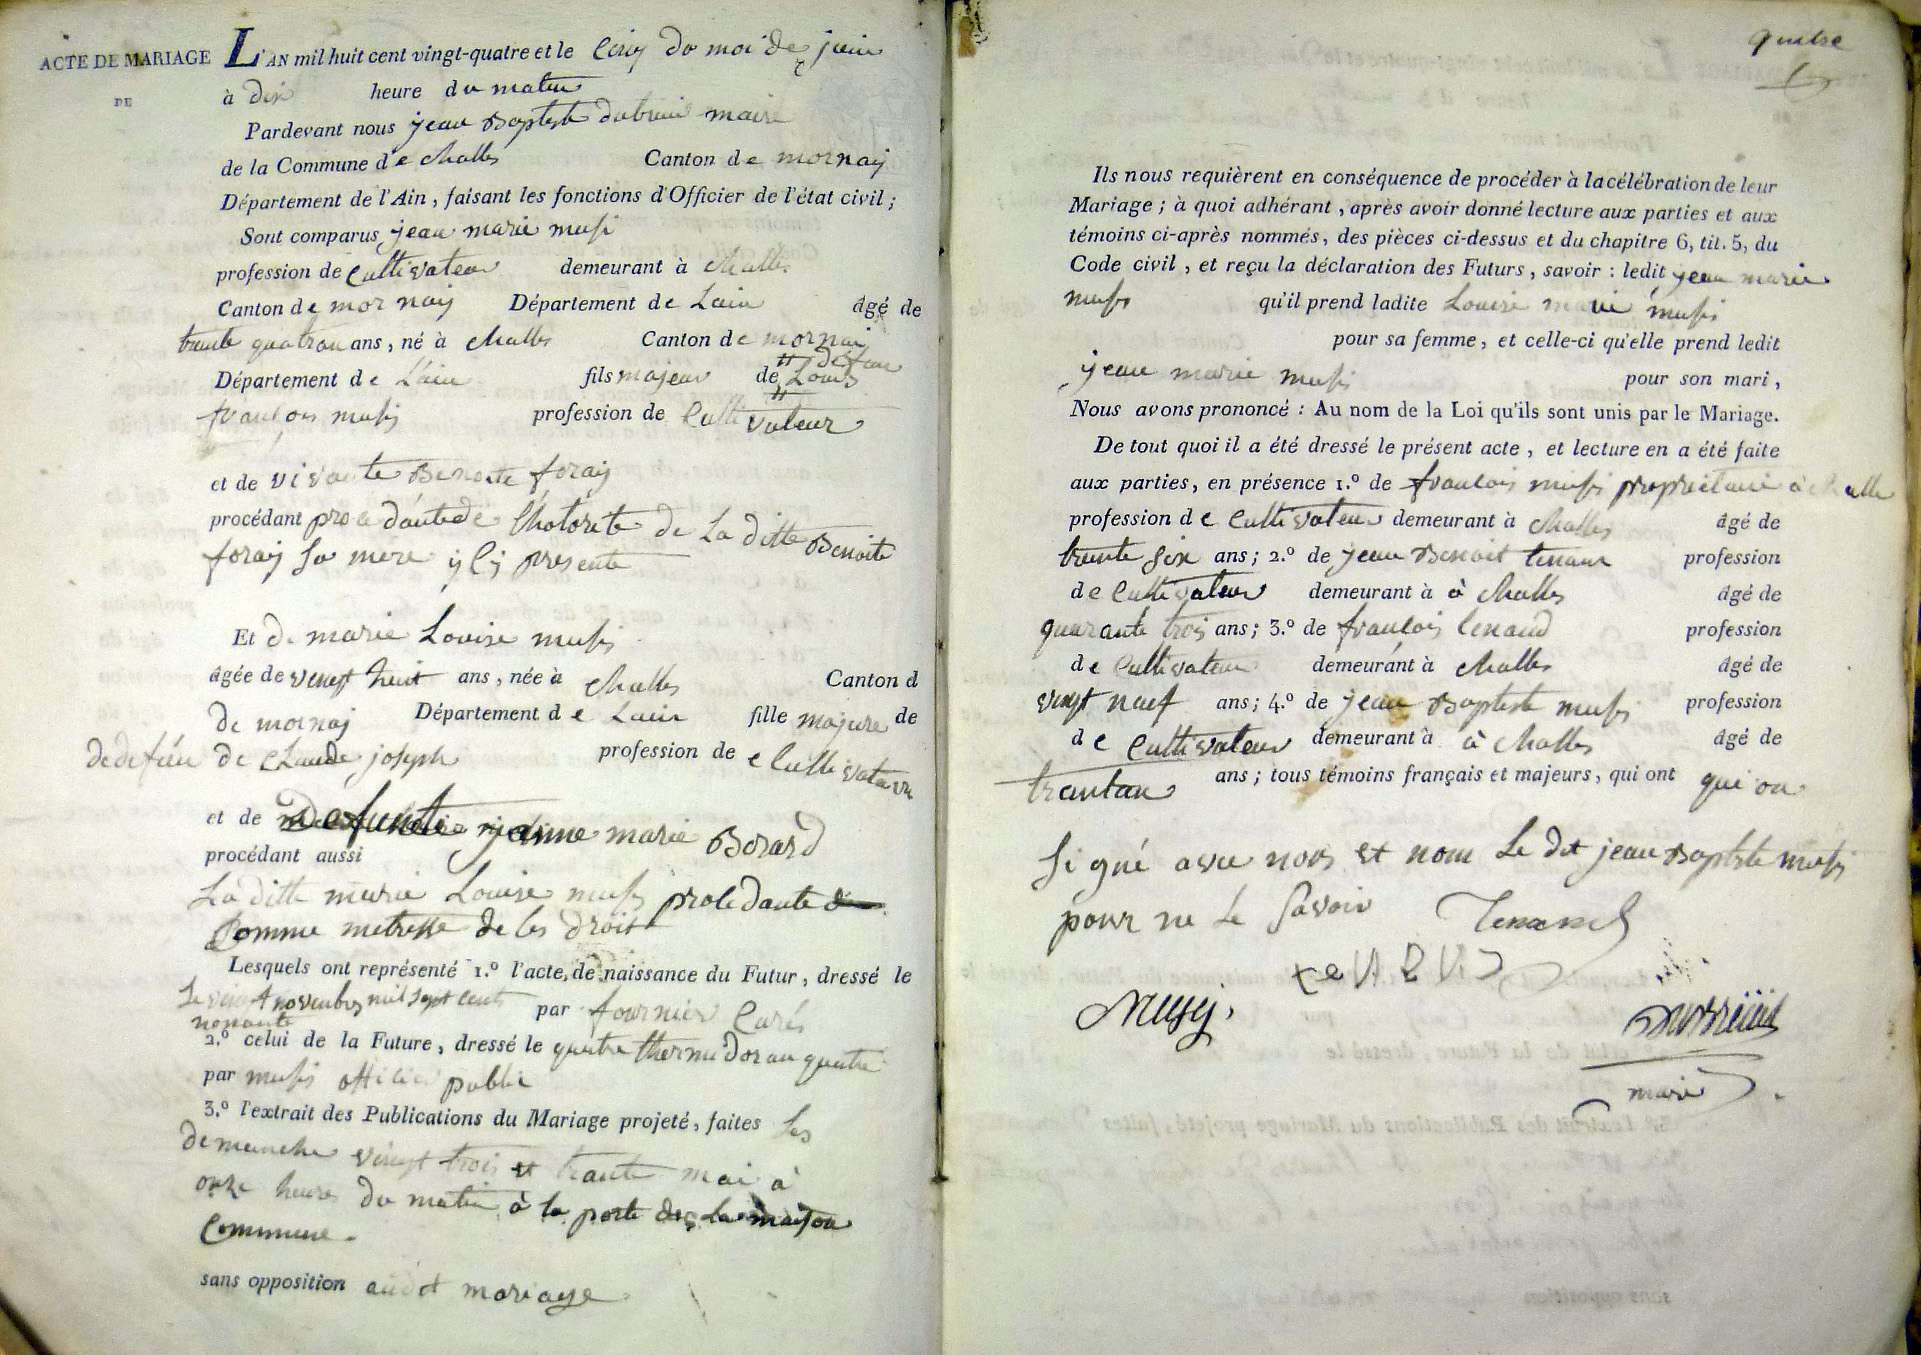 ACTE DE MARIAGE
DE
L'AN mil huit cent vingt-quatre et le Cinq du moi de juin
à dix heure du matin
Pardevant nous jean Baptiste dubruit maire
de la Commune de challes Canton de mornay
Département de l'Ain, faisant les fonctions d'Officier de l'état civil ;
Sont comparus jean marie musy
profession de Cultivateur demeurant à challes
Canton de mornay Département de Lain âgé de
trente quatrou ans, né à challes Canton de mornay
Département de L'ain fils majeur de défun Louis
françois musy profession de Cultivateur
et de vivante Benoite foray
procédant de Lhotorité de La ditte Benoite
foray Sa mere y Cy presente
Et de marie Louise musy
âgée de vingt huit ans, née à challes Canton d
de mornay Département de Lain fille majure de
de defun de Claude joseph profession de Cultivateur
et de Defunte jeanne marie Borard
procédant aussi
La ditte marie Louise musy procedante
Comme metresse de Ces droit
Lesquels ont représenté 1.º l'acte de naissance du Futur, dressé le
Le vingt novembre mil sept cents
nonante par fournier Curé
2.º celui de la Future, dressé le quatre thermidor an quatre
par musy officier public
3.º l'extrait des Publications du Mariage projeté, faites Les
demanche vingt trois et trante mai à
onze heures du matin à la porte de La maison
Commune.
sans opposition audit mariage
quatre
Ils nous requièrent en conséquence de procéder à la célébration de leur
Mariage ; à quoi adhérant, après avoir donné lecture aux parties et aux
témoins ci-après nommés, des pièces ci-dessus et du chapitre 6, tit. 5, du
Code civil, et reçu la déclaration des Futurs, savoir : ledit jean marie
musy qu'il prend ladite Louise marie musy
pour sa femme, et celle-ci qu'elle prend ledit
jean marie musy pour son mari,
Nous avons prononcé : Au nom de la Loi qu'ils sont unis par le Mariage.
De tout quoi il a été dressé le présent acte, et lecture en a été faite
aux parties, en présence 1.º de françois musy proprietaire à challe
profession de Cultivateur demeurant à challes âgé de
trente six ans ; 2.º de jean Benoit tenan profession
de Cultivateur demeurant à à challes âgé de
quarante trois ans ; 3.º de françois tenand profession
de Cultivateur demeurant à challes âgé de
vingt neuf ans ; 4.º de jean Baptiste musy profession
de Cultivateur demeurant à à challes âgé de
trantan ans ; tous témoins français et majeurs, qui ont qui on
Signé avec nous et nom Le dit jean Baptiste musy
pour ne Le Savoir Tenand
Musy.
Dubruit
maire